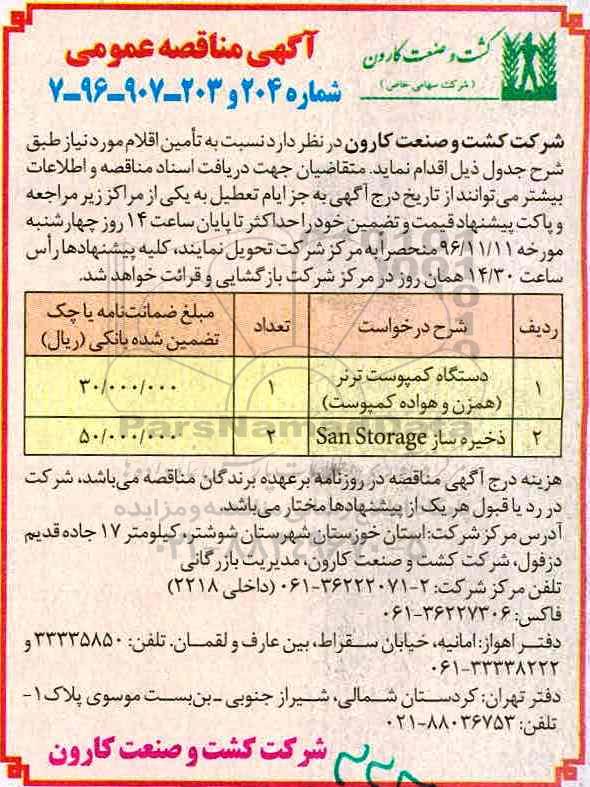 کشت و صنعت کارون
(شرکت سهامی خاص)
آگهی مناقصه عمومی
شماره ۲۰۴ و ۲۰۳-۹۰۷-۹۶-۷
شرکت کشت و صنعت کارون در نظر دارد نسبت به تأمین اقلام مورد نیاز طبق
شرح جدول ذیل اقدام نماید. متقاضیان جهت دریافت اسناد مناقصه و اطلاعات
بیشتر می‌توانند از تاریخ درج آگهی به جز ایام تعطیل به یکی از مراکز زیر مراجعه
و پاکت پیشنهاد قیمت و تضمین خود را حداکثر تا پایان ساعت ۱۴ روز چهارشنبه
مورخه ۹۶/۱۱/۱۱ منحصرا به مرکز شرکت تحویل نمایند، کلیه پیشنهادها رأس
ساعت ۱۴/۳۰ همان روز در مرکز شرکت بازگشایی و قرائت خواهد شد.
ردیف شرح درخواست تعداد مبلغ ضمانت‌نامه یا چک
تضمین شده بانکی (ریال)
۱ دستگاه کمپوست ترنر
(همزن و هواده کمپوست) ۱ ۳۰/۰۰۰/۰۰۰
۲ ذخیره ساز San Storage ۲ ۵۰/۰۰۰/۰۰۰
ParsNamadData
هزینه درج آگهی مناقصه در روزنامه برعهده برندگان مناقصه می‌باشد، شرکت
در رد یا قبول هر یک از پیشنهادها مختار می‌باشد.
آدرس مرکز شرکت: استان خوزستان شهرستان شوشتر، کیلومتر ۱۷ جاده قدیم
دزفول، شرکت کشت و صنعت کارون، مدیریت بازرگانی
تلفن مرکز شرکت: ۲-۳۶۲۲۲۰۷۱-۰۶۱ (داخلی ۲۲۱۸)
فاکس: ۳۶۲۲۷۳۰۶-۰۶۱
دفتر اهواز: امانیه، خیابان سقراط، بین عارف و لقمان. تلفن: ۳۳۳۳۵۸۵۰ و
۳۳۳۳۸۲۲۲-۰۶۱
دفتر تهران: کردستان شمالی، شیراز جنوبی -بن‌بست موسوی پلاک ۱-
تلفن: ۸۸۰۳۶۷۵۳-۰۲۱
شرکت کشت و صنعت کارون